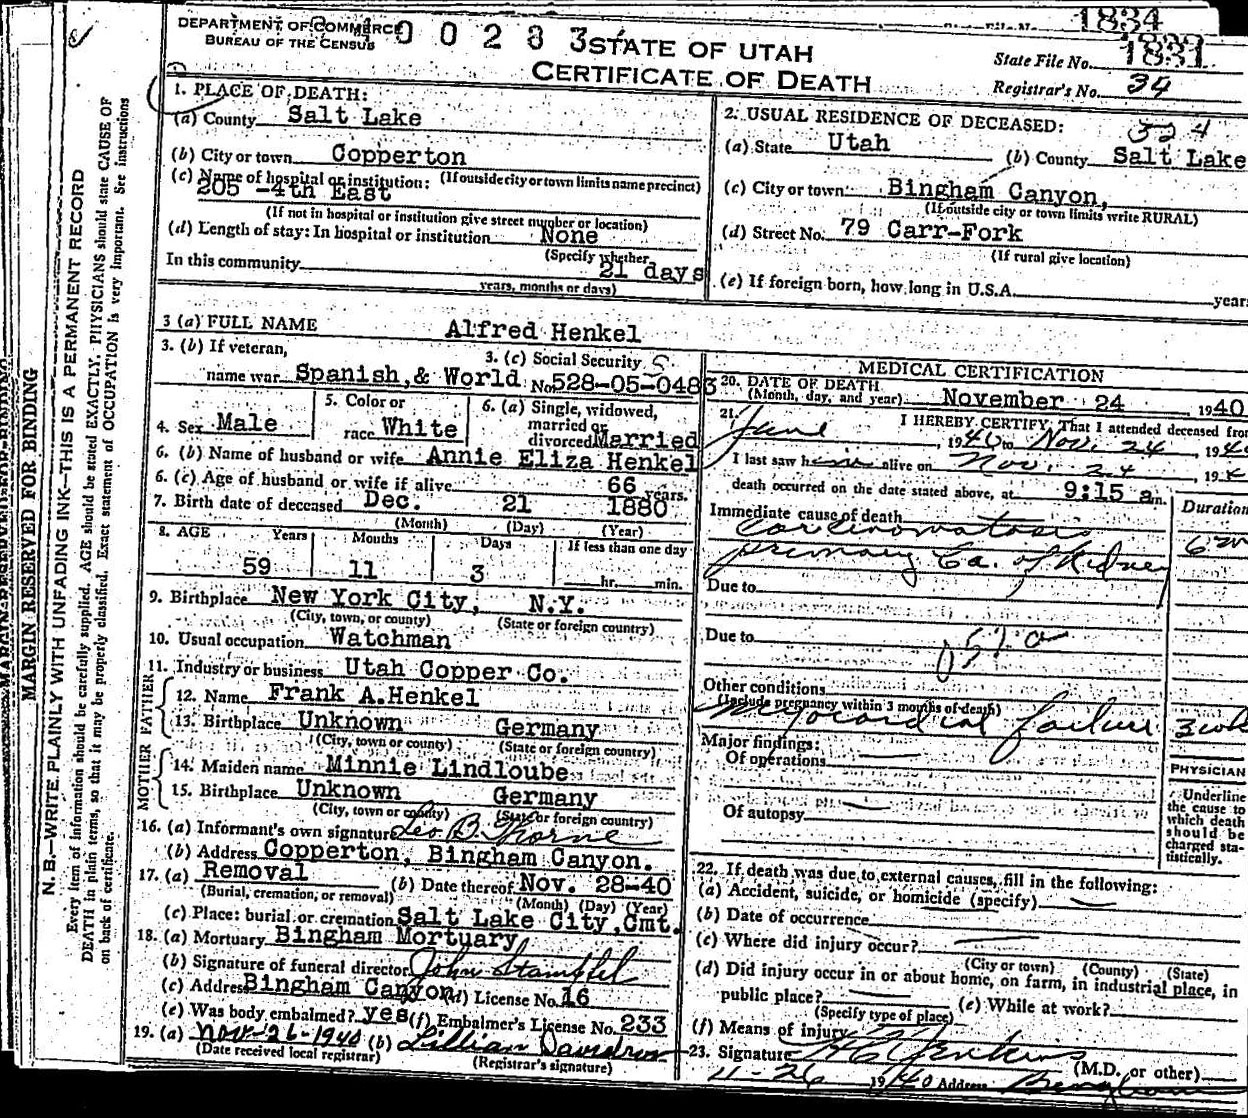 DEPARTMENT OF COMMERCE
BUREAU OF THE CENSUS
STATE OF UTAH
CERTIFICATE OF DEATH
1834
State File No. 1831
Registrar's No. 34
1. PLACE OF DEATH:
(a) County Salt Lake
(b) City or town Copperton
(c) Name of hospital or institution: (If outside city or town limits name precinct)
205 -4th East
(If not in hospital or institution give street number or location)
(d) Length of stay: In hospital or institution None
(Specify whether
In this community 21 days
years, months or days)
2. USUAL RESIDENCE OF DECEASED:
324
(a) State Utah (b) County Salt Lake
(c) City or town Bingham Canyon,
(If outside city or town limits write RURAL)
(d) Street No. 79 Carr-Fork
(If rural give location)
(e) If foreign born, how long in U.S.A. years
3 (a) FULL NAME Alfred Henkel
3. (b) If veteran,
name war Spanish,& World
3. (c) Social Security
No. 528-05-0483
4. Sex Male
5. Color or
race White
6. (a) Single, widowed,
married or
divorced Married
6. (b) Name of husband or wife Annie Eliza Henkel
6. (c) Age of husband or wife if alive 66 years.
7. Birth date of deceased Dec. 21 1880
(Month) (Day) (Year)
8. AGE Years Months Days If less than one day
59 11 3 hr. min.
9. Birthplace New York City, N.Y.
(City, town, or county) (State or foreign country)
10. Usual occupation Watchman
11. Industry or business Utah Copper Co.
FATHER
12. Name Frank A.Henkel
13. Birthplace Unknown Germany
(City, town or county) (State or foreign country)
MOTHER
14. Maiden name Minnie Lindloube
15. Birthplace Unknown Germany
(City, town or county) (State or foreign country)
16. (a) Informant's own signature Leo B. Thorne
(b) Address Copperton, Bingham Canyon.
17. (a) Removal (b) Date thereof Nov. 28-40
(Burial, cremation, or removal) (Month) (Day) (Year)
(c) Place: burial or cremation Salt Lake City,Cmt.
18. (a) Mortuary Bingham Mortuary
(b) Signature of funeral director John Stampfel
(c) Address Bingham Canyon (d) License No. 16
(e) Was body embalmed? yes (f) Embalmer's License No. 233
19. (a) Nov-26-1940 (b) Lillian Davidson
(Date received local registrar) (Registrar's signature)
MEDICAL CERTIFICATION
20. DATE OF DEATH
(Month, day, and year) November 24 1940
21. I HEREBY CERTIFY, That I attended deceased from
June, 1940 to Nov. 24, 1940
I last saw him alive on Nov. 24, 194
death occurred on the date stated above, at 9:15 am.
Immediate cause of death
Duration
Carcinomatosis
primary Ca. of Kidney
Due to
Due to
Other conditions
(Include pregnancy within 3 months of death)
Myocardial failure
Major findings:
Of operations
Of autopsy
PHYSICIAN
Underline
the cause to
which death
should be
charged sta-
tistically.
22. If death was due to external causes, fill in the following:
(a) Accident, suicide, or homicide (specify)
(b) Date of occurrence
(c) Where did injury occur?
(City or town) (County) (State)
(d) Did injury occur in or about home, on farm, in industrial place, in
public place? (e) While at work?
(Specify type of place)
(f) Means of injury
23. Signature Jenkins
(M.D. or other)
11-26 1940 Address Bingham
MARGIN RESERVED FOR BINDING
N. B.—WRITE PLAINLY WITH UNFADING INK—THIS IS A PERMANENT RECORD
Every item of information should be carefully supplied. AGE should be stated EXACTLY. PHYSICIANS should state CAUSE OF
DEATH in plain terms, so that it may be properly classified. Exact statement of OCCUPATION is very important. See instructions
on back of certificate.